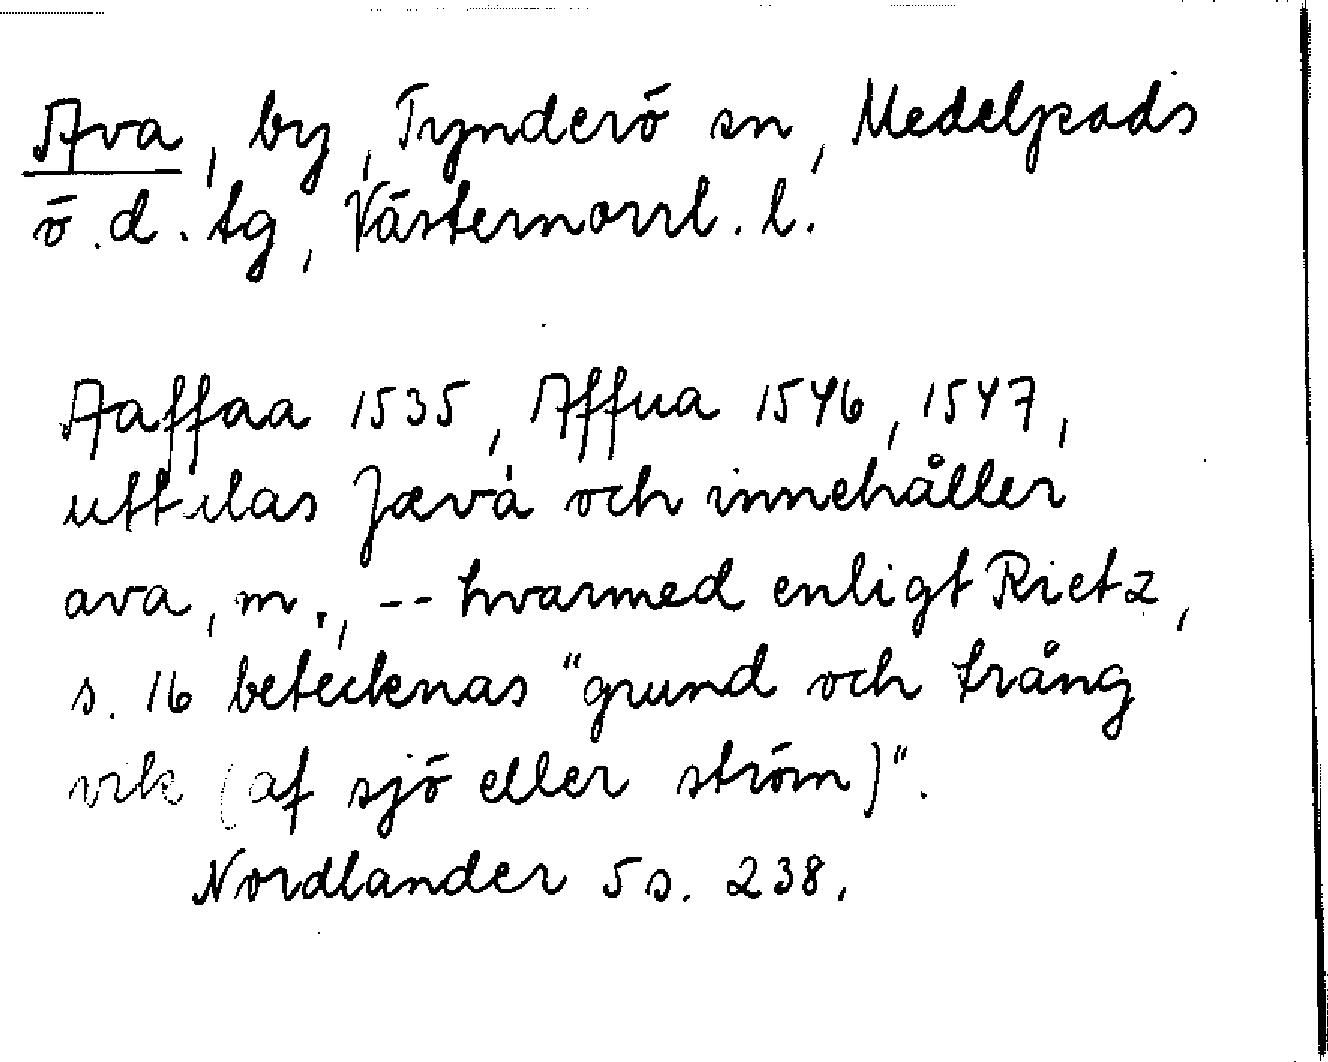 Ava, by, Tynderö sn, Medelpads
ö. d. tg, Västernorrl. l.
Aaffaa 1535, Affua 1546, 1547,
uttalas Jævá och innehåller
ava, m., -- hvarmed enligt Rietz,
s. 16 betecknas "grund och trång
vik (af sjö eller ström)".
Nordlander 5 s. 238.